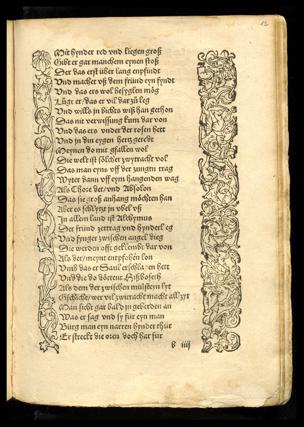 12
Mit hynder red vnd liegen groß
Gibt er gar manchem eynen stoß
Der das erst über lang enpfindt
Vnd machet vß dem fründ eyn fyndt
Vnd das ers wol besyglen mög
Lügt er / das er vil dar zů leg
Vnd wills in bichts wiß han gethon
Das nit verwissung kum dar von
Vnd das ers vnder der rosen hett
Vnd jn din eygen hertz geredt
Meynen do mit gfallen wol
Die welt ist sölcher zwytracht vol
Das man eyns vff der zungen trag
Wyter dann vff eym hangenden wag
Als Chore det / vnd Absolon
Das sie groß anhang möchten han
Aber es schlůg in vbel vß
In allem land ist Alchymus
Der fründ zertrag vnd hynderleg
Vnd fynger zwischen angel
Die werden offt geklembt dar von
Als der / meynt entpfohen lon
Vmb das er Saul erschlagen hett
Vnd die do dötten Hißboseth
Als dem der zwischen mülsteyn lyt
Gschicht / wer vil zwitracht macht all zyt
Man sicht gar bald jn geberden an
Was er sag vnd sy für eyn man
Bürg man eyn narren hynder thür
Er streckt die oren doch har für
b iiij